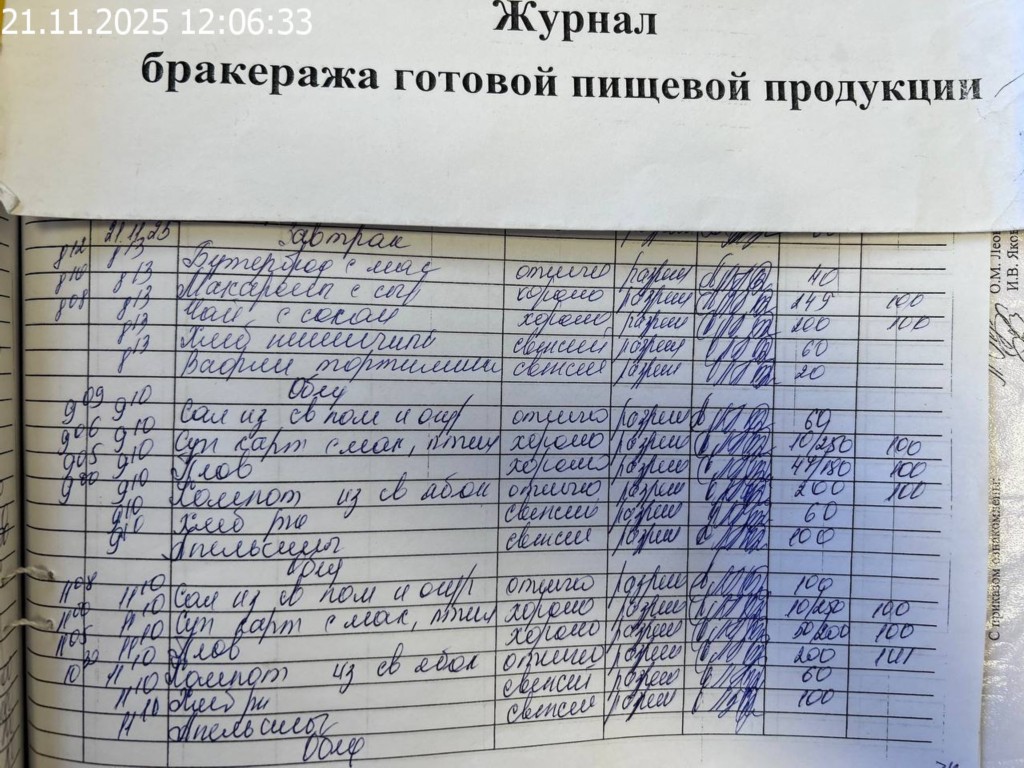 21.11.2025 12:06:33
Журнал
бракеража готовой пищевой продукции
21.11.25 Завтрак
8 12 8 13 Бутерброд с мас отлично разреш 40
8 10 8 13 Макароны с сыр хорошо разреш 145 100
8 08 8 13 Чай с сахом хорошо разреш 200 100
8 13 Хлеб пшенични свежий разреш 60
8 13 Вафли тортишни свежий разреш 20
Обед
9 09 9 10 Сал из св пом и огур отлично разреш 60
9 06 9 10 Суп карт с мак, птиц хорошо разреш 10/250 100
9 05 9 10 Плов хорошо разреш 100
9 00 9 10 Компот из св яблок отлично разреш 200 100
9 10 Хлеб рж свежий разреш 60
9 10 Апельсины свежий разреш 100
Обед
11 08 11 10 Сал из св пом и огур отлично разреш 100
11 10 Суп карт с мак, птиц хорошо разреш 100
11 05 11 10 Плов хорошо разреш 50/200 100
11 10 Компот из св яблок отлично разреш 200
11 10 Хлеб рж свежий разреш 60
11 10 Апельсины свежий разреш 100
Обед
О.М. Леон
И.В. Яков
С приказом ознакомлены: